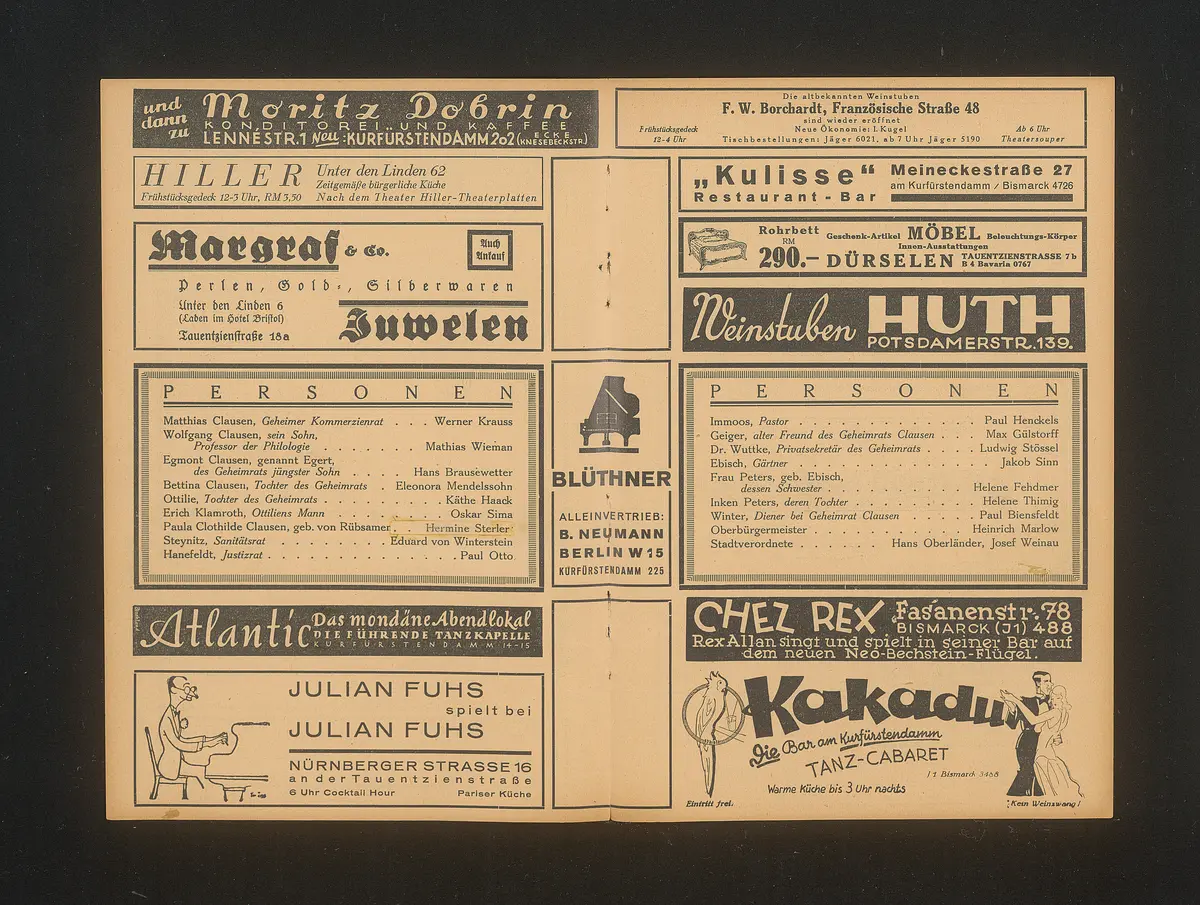 und
dann
zu
Moritz Dobrin
KONDITOREI UND KAFFEE
LENNÉSTR.1 Neu: KURFÜRSTENDAMM 202 (ECKE KNESEBECKSTR.)
HILLER
Unter den Linden 62
Zeitgemäße bürgerliche Küche
Frühstücksgedeck 12-3 Uhr, RM 3,50 Nach dem Theater Hiller-Theaterplatten
Margraf & Co.
Auch
Ankauf
Perlen, Gold-, Silberwaren
Unter den Linden 6
(Laden im Hotel Bristol)
Tauentzienstraße 18a
Juwelen
PERSONEN
Matthias Clausen, Geheimer Kommerzienrat . . . Werner Krauss
Wolfgang Clausen, sein Sohn,
Professor der Philologie . . . . . . . . Mathias Wieman
Egmont Clausen, genannt Egert,
des Geheimrats jüngster Sohn . . . . . Hans Brausewetter
Bettina Clausen, Tochter des Geheimrats . Eleonora Mendelssohn
Ottilie, Tochter des Geheimrats . . . . . . . . Käthe Haack
Erich Klamroth, Ottiliens Mann . . . . . . . . Oskar Sima
Paula Clothilde Clausen, geb. von Rübsamer . . Hermine Sterler
Steynitz, Sanitätsrat . . . . . . . . Eduard von Winterstein
Hanefeldt, Justizrat . . . . . . . . . . . . . . Paul Otto
Atlantic
Das mondäne Abendlokal
DIE FÜHRENDE TANZKAPELLE
KURFÜRSTENDAMM 14-15
JULIAN FUHS
spielt bei
JULIAN FUHS
NÜRNBERGER STRASSE 16
an der Tauentzienstraße
6 Uhr Cocktail Hour Pariser Küche
BLÜTHNER
ALLEINVERTRIEB:
B. NEUMANN
BERLIN W 15
KURFÜRSTENDAMM 225
Die altbekannten Weinstuben
F. W. Borchardt, Französische Straße 48
sind wieder eröffnet
Frühstücksgedeck Neue Ökonomie: I. Kugel Ab 6 Uhr
12-4 Uhr Tischbestellungen: Jäger 6021, ab 7 Uhr Jäger 5190 Theatersouper
„Kulisse“
Restaurant - Bar
Meineckestraße 27
am Kurfürstendamm / Bismarck 4726
Rohrbett
RM
290.–
Geschenk-Artikel MÖBEL Beleuchtungs-Körper
Innen-Ausstattungen
DÜRSELEN TAUENTZIENSTRASSE 7b
B 4 Bavaria 0767
Weinstuben HUTH
POTSDAMERSTR. 139.
PERSONEN
Immoos, Pastor . . . . . . . . . . . . . . Paul Henckels
Geiger, alter Freund des Geheimrats Clausen . . . . Max Gülstorff
Dr. Wuttke, Privatsekretär des Geheimrats . . . . . Ludwig Stössel
Ebisch, Gärtner . . . . . . . . . . . . . . Jakob Sinn
Frau Peters, geb. Ebisch,
dessen Schwester . . . . . . . . . . . Helene Fehdmer
Inken Peters, deren Tochter . . . . . . . . . Helene Thimig
Winter, Diener bei Geheimrat Clausen . . . . . . Paul Biensfeldt
Oberbürgermeister . . . . . . . . . . . . Heinrich Marlow
Stadtverordnete . . . . . . . Hans Oberländer, Josef Weinau
CHEZ REX
Fasanenstr. 78
BISMARCK (J1) 488
Rex Allan singt und spielt in seiner Bar auf
dem neuen Neo-Bechstein-Flügel.
Kakadu
Die Bar am Kurfürstendamm
TANZ-CABARET
J 1 Bismarck 3488
Warme Küche bis 3 Uhr nachts
Eintritt frei.
Kein Weinzwang!